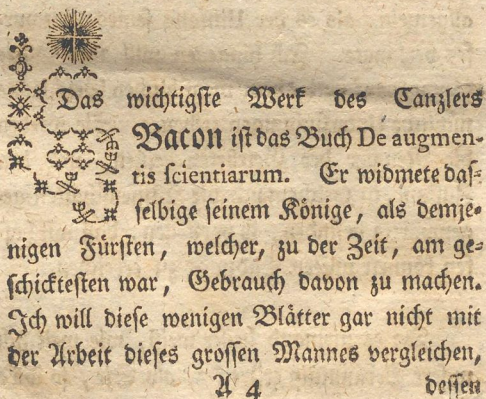 Das wichtigste Werk des Canzlers
Bacon ist das Buch De augmen-
tis scientiarum. Er widmete das-
selbige seinem Könige, als demje-
nigen Fürsten, welcher, zu der Zeit, am ge-
schicktesten war, Gebrauch davon zu machen.
Ich will diese wenigen Blätter gar nicht mit
der Arbeit dieses grossen Mannes vergleichen,
A 4 dessen